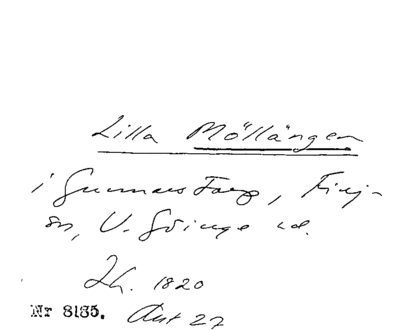 Lilla Möllängen
i Gunnarstorp, Finj-
an, V. Göinge hd.
Lh. 1820
Nr 8135. Ant 27